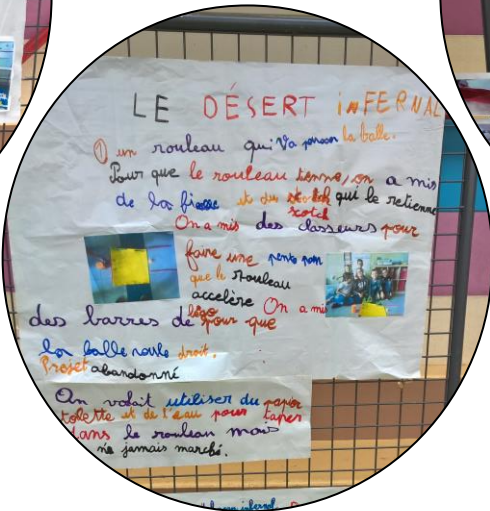 LE DÉSERT iNFERNAL
① un rouleau qui va pousser la balle.
Pour que le rouleau tenne, on a mis
de la ficelle et du scotch qui le retienne
scotch
On a mis des classeurs pour
faire une pente pour
que le rouleau
accelère On a mis
des barres de lego pour que
la balle roule droit.
Projet abandonné
On volait utiliser du papier
tolette et de l'eau pour taper
dans le rouleau mais
ne jamais marché.